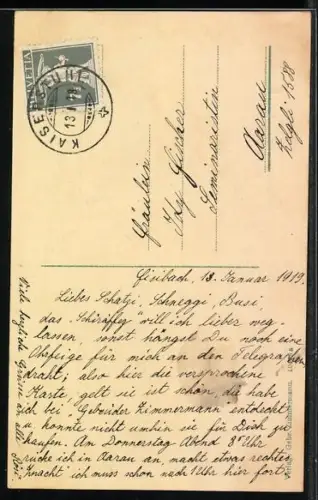 HELVETIA
KAISERSTUHL
13.I.19
Fräulein
Idy Fischer
Seminaristin
Aarau
Zelgli 1588
Fisibach, 13. Januar 1919.
Liebes Schatzi, Schneggi, Busi,
das „Schiräffig" will ich lieber weg-
lassen, sonst hängst Du noch eine
Ohrfeige für mich an den Telegrafen
draht; also hier die versprochene
Karte, gelt sie ist schön, die habe
ich bei Gebrüder Zimmermann entdeckt
u. konnte nicht umhin sie für Dich zu
kaufen. Am Donnerstag Abend 8 Uhr
rücke ich in Aarau an, macht etwas rechtes
Znacht ich muss schon nach 1 Uhr hier fort
Viele herzliche Grüsse an alle